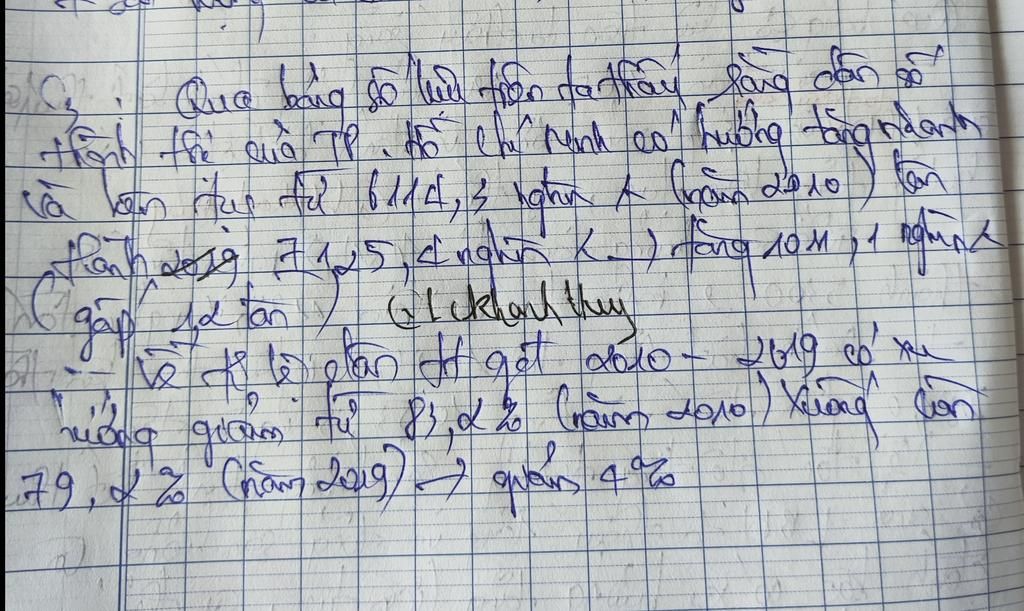 C3: Qua bảng số liệu trên ta thấy rằng dân số
thành thị của TP. Hồ Chí Minh có hướng tăng nhanh
và liên tục từ 6114,3 nghìn (năm 2010) lên
thành 2019 7125,4 nghìn → tăng 1011,1 nghìn
(gấp 1,2 lần) GLCkhanhthuy
- Về tỷ lệ dân tt gđt 2010 - 2019 có xu
hướng giảm từ 83,2% (năm 2010) xuống còn
79,2% (năm 2019) → giảm 4%